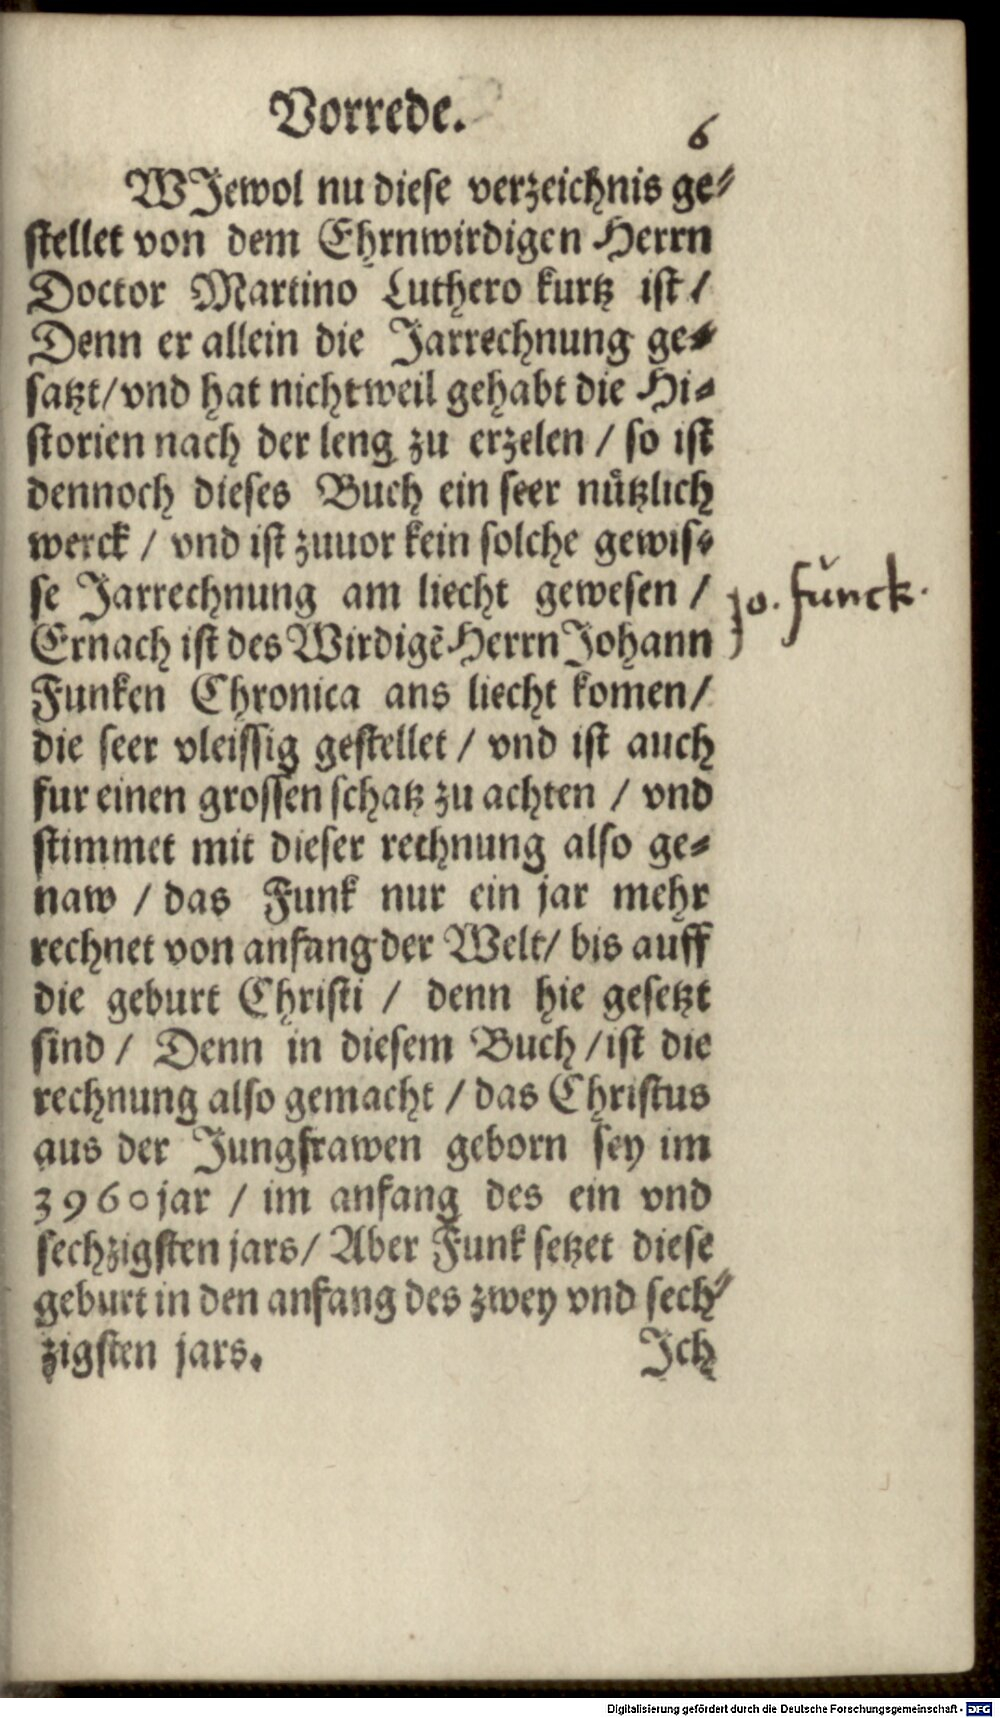 Vorrede.
6
WJewol nu diese verzeichnis ge-
stellet von dem Ehrnwirdigen Herrn
Doctor Martino Luthero kurtz ist /
Denn er allein die Jarrechnung ge-
satzt / vnd hat nicht weil gehabt die Hi-
storien nach der leng zu erzelen / so ist
dennoch dieses Buch ein seer nützlich
werck / vnd ist zuuor kein solche gewis-
se Jarrechnung am liecht gewesen /
Ernach ist des Wirdigẽ Herrn Johann
Funken Chronica ans liecht komen /
die seer vleissig gestellet / vnd ist auch
fur einen grossen schatz zu achten / vnd
stimmet mit dieser rechnung also ge-
naw / das Funk nur ein jar mehr
rechnet von anfang der Welt / bis auff
die geburt Christi / denn hie gesetzt
sind / Denn in diesem Buch / ist die
rechnung also gemacht / das Christus
aus der Jungfrawen geborn sey im
3960 jar / im anfang des ein vnd
sechzigsten jars / Aber Funk setzet diese
geburt in den anfang des zwey vnd sech-
zigsten jars.
Jch
Jo. Funck.
Digitalisierung gefördert durch die Deutsche Forschungsgemeinschaft - DFG